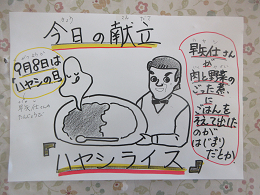 今日の献立
きょう こんだて
9月8日は
ハヤシの日
早矢仕さん
が
肉と野菜の
ごった煮
に
ごはんを
そえて出した
のが
はじまり
だとか
『ハヤシライス』